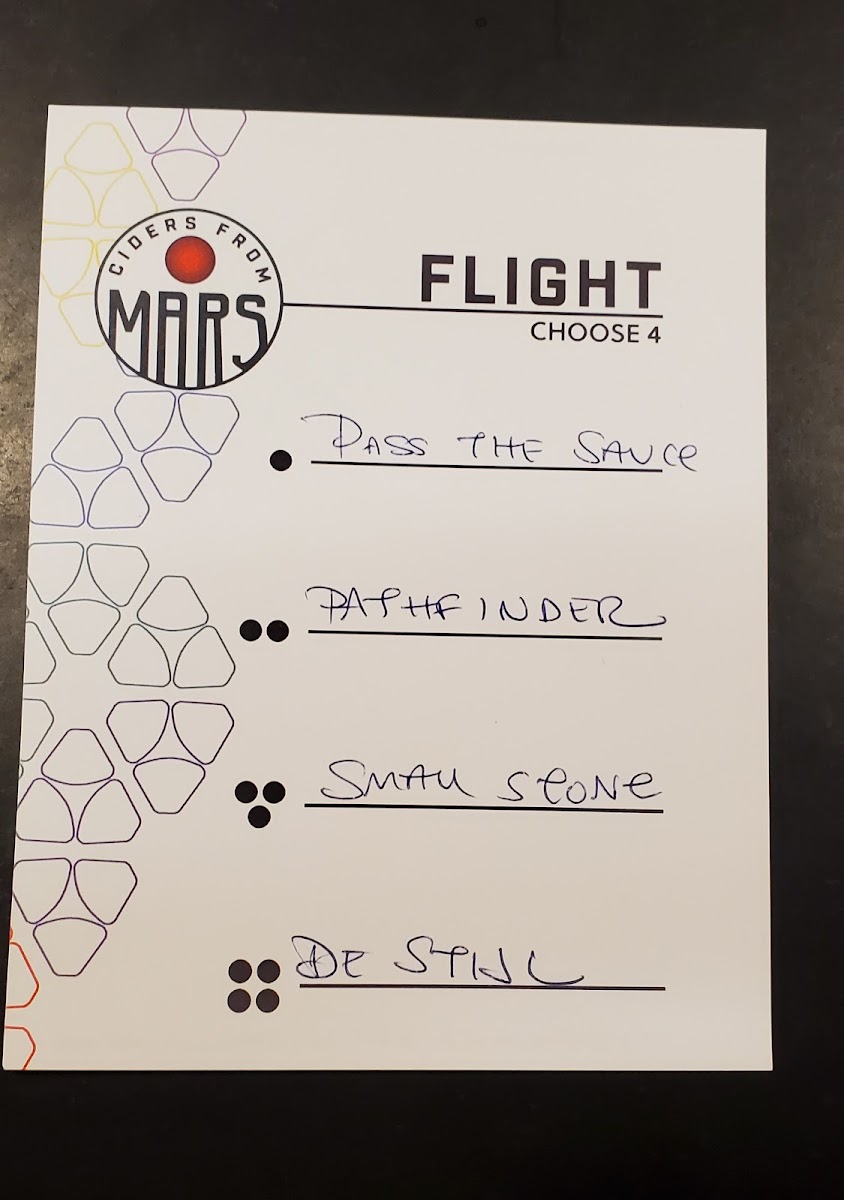 CIDERS FROM
MARS
FLIGHT
CHOOSE 4
PASS THE SAUCE
PATHFINDER
SMALL STONE
DE STIJL